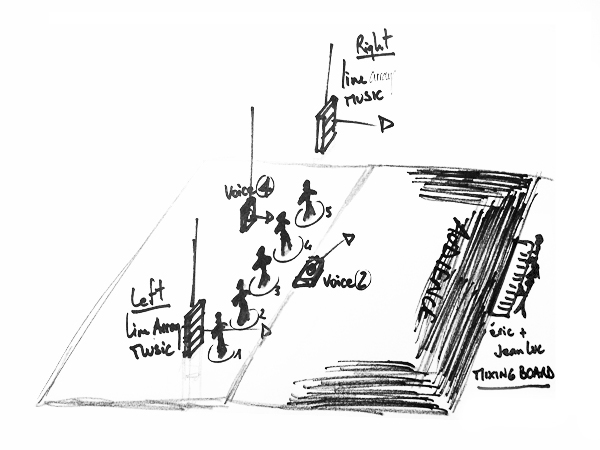 Right
line Array
MUSIC
Voice 4
5
4
3
2
1
Voice 2
AUDIENCE
Left
Line Array
MUSIC
éric +
Jean Luc
MIXING BOARD